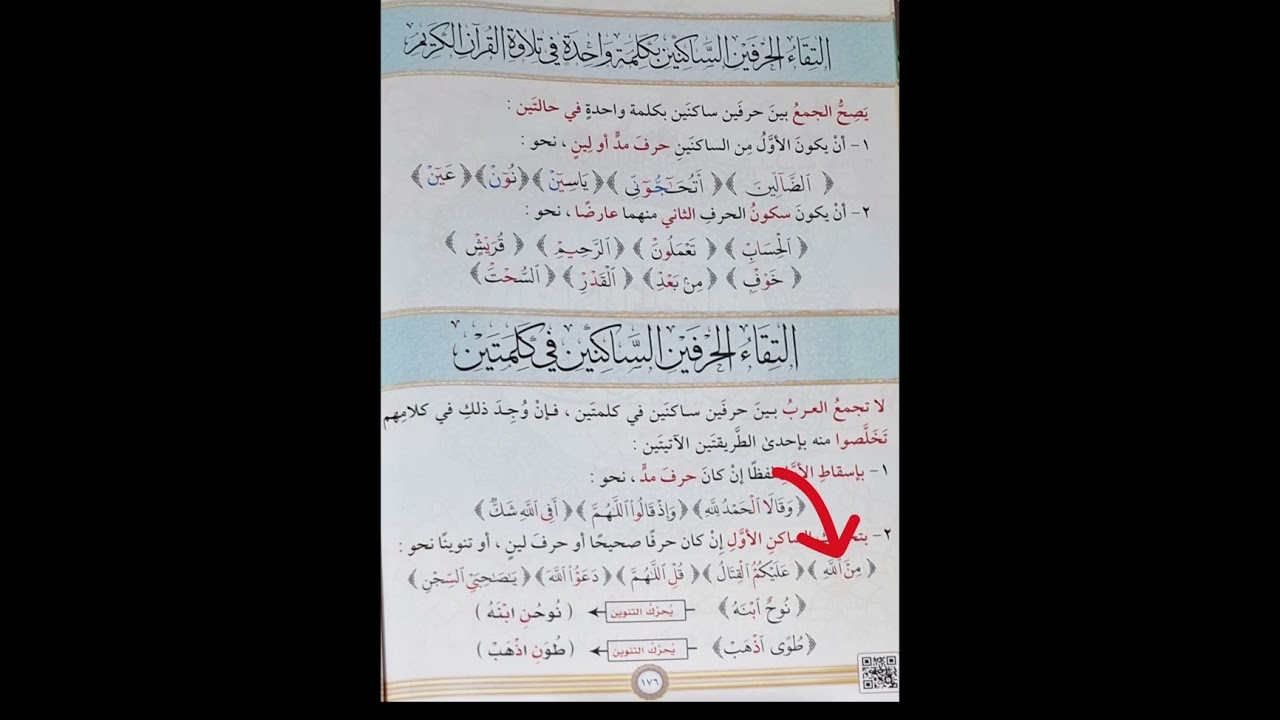 التِقَاءُ الحَرفَينِ السَّاكِنَينِ بِكَلِمَةٍ وَاحِدَةٍ فِي تِلَاوَةِ القُرآنِ الكَرِيمِ
يَصِحُّ الجمعُ بينَ حرفَين ساكنَين بكلمة واحدةٍ في حالتَين :
١- أنْ يكونَ الأوَّلُ مِن الساكنَينِ حرفَ مدٍّ أو لِينٍ ، نحو :
﴿ ٱلضَّآلِّينَ ﴾ ﴿ أَتُحَـٰٓجُّوٓنِّى ﴾ ﴿ يَاسِيٓنْ ﴾ ﴿ نُوٓنْ ﴾ ﴿ عَيٓنْ ﴾
٢- أنْ يكونَ سكونُ الحرفِ الثاني منهما عارضًا ، نحو :
﴿ ٱلْحِسَابْ ﴾ ﴿ تَعْمَلُونْ ﴾ ﴿ ٱلرَّحِيمْ ﴾ ﴿ قُرَيْشْ ﴾
﴿ خَوْفْ ﴾ ﴿ مِنۢ بَعْدْ ﴾ ﴿ ٱلْقَدْرْ ﴾ ﴿ ٱلسُّحْتْ ﴾
التِقَاءُ الحَرفَيْنِ السَّاكِنَيْنِ فِي كَلِمَتَيْنِ
لا تجمعُ العربُ بـينَ حرفَين سـاكنَين في كلمتَين ، فـإنْ وُجِـدَ ذلكِ في كلامِهم
تَخَلَّصوا منه بإحدىٰ الطَّريقتَين الآتيتَين :
١- بإسقاطِ لفظًا إنْ كانَ حرفَ مدٍّ ، نحو :
﴿ وَقَالَا ٱلْحَمْدُ لِلَّهِ ﴾ ﴿ وَإِذْ قَالُوا۟ ٱللَّهُمَّ ﴾ ﴿ أَفِى ٱللَّهِ شَكٌّ ﴾
٢- الأوَّلِ إنْ كان حرفًا صحيحًا أو حرفَ لينٍ ، أو تنوينًا نحو :
﴿ مِنَ ٱللَّهِ ﴾ ﴿ عَلَيْكُمُ ٱلْقِتَالُ ﴾ ﴿ قُلِ ٱللَّهُمَّ ﴾ ﴿ دَعَوُا ٱللَّهَ ﴾ ﴿ يَـٰصَـٰحِبَىِ ٱلسِّجْنِ ﴾
﴿ نُوحٌ ٱبْنَهُ ﴾ يُحرَّكُ التنوين ( نُوحُنِ ابْنَهُ )
﴿ طُوًى ٱذْهَبْ ﴾ يُحرَّكُ التنوين ( طُوَنِ اذْهَبْ )
١٧٦